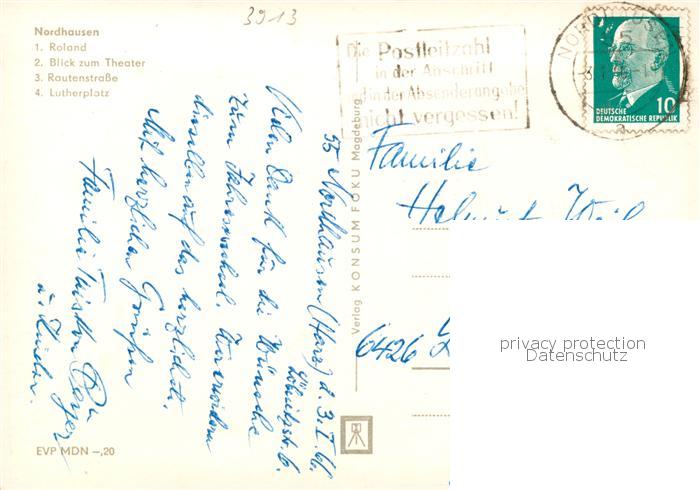 3913
Nordhausen
1. Roland
2. Blick zum Theater
3. Rautenstraße
4. Lutherplatz
Die Postleitzahl
in der Anschrift
und in der Absenderangabe
nicht vergessen!
NORDHAUSEN
DEUTSCHE
DEMOKRATISCHE REPUBLIK
10
a
55 Nordhausen (Harz) d. 3. I. 66.
Vielen Dank für die Wünsche
zum Jahreswechsel. Wir erwidern
dieselben auf das herzlichste.
Mit herzlichen Grüßen
Familie
u. Kinder.
Verlag KONSUM FOKU Magdeburg
Familie
Helmut Weil
6426
privacy protection
Datenschutz
EVP MDN –,20